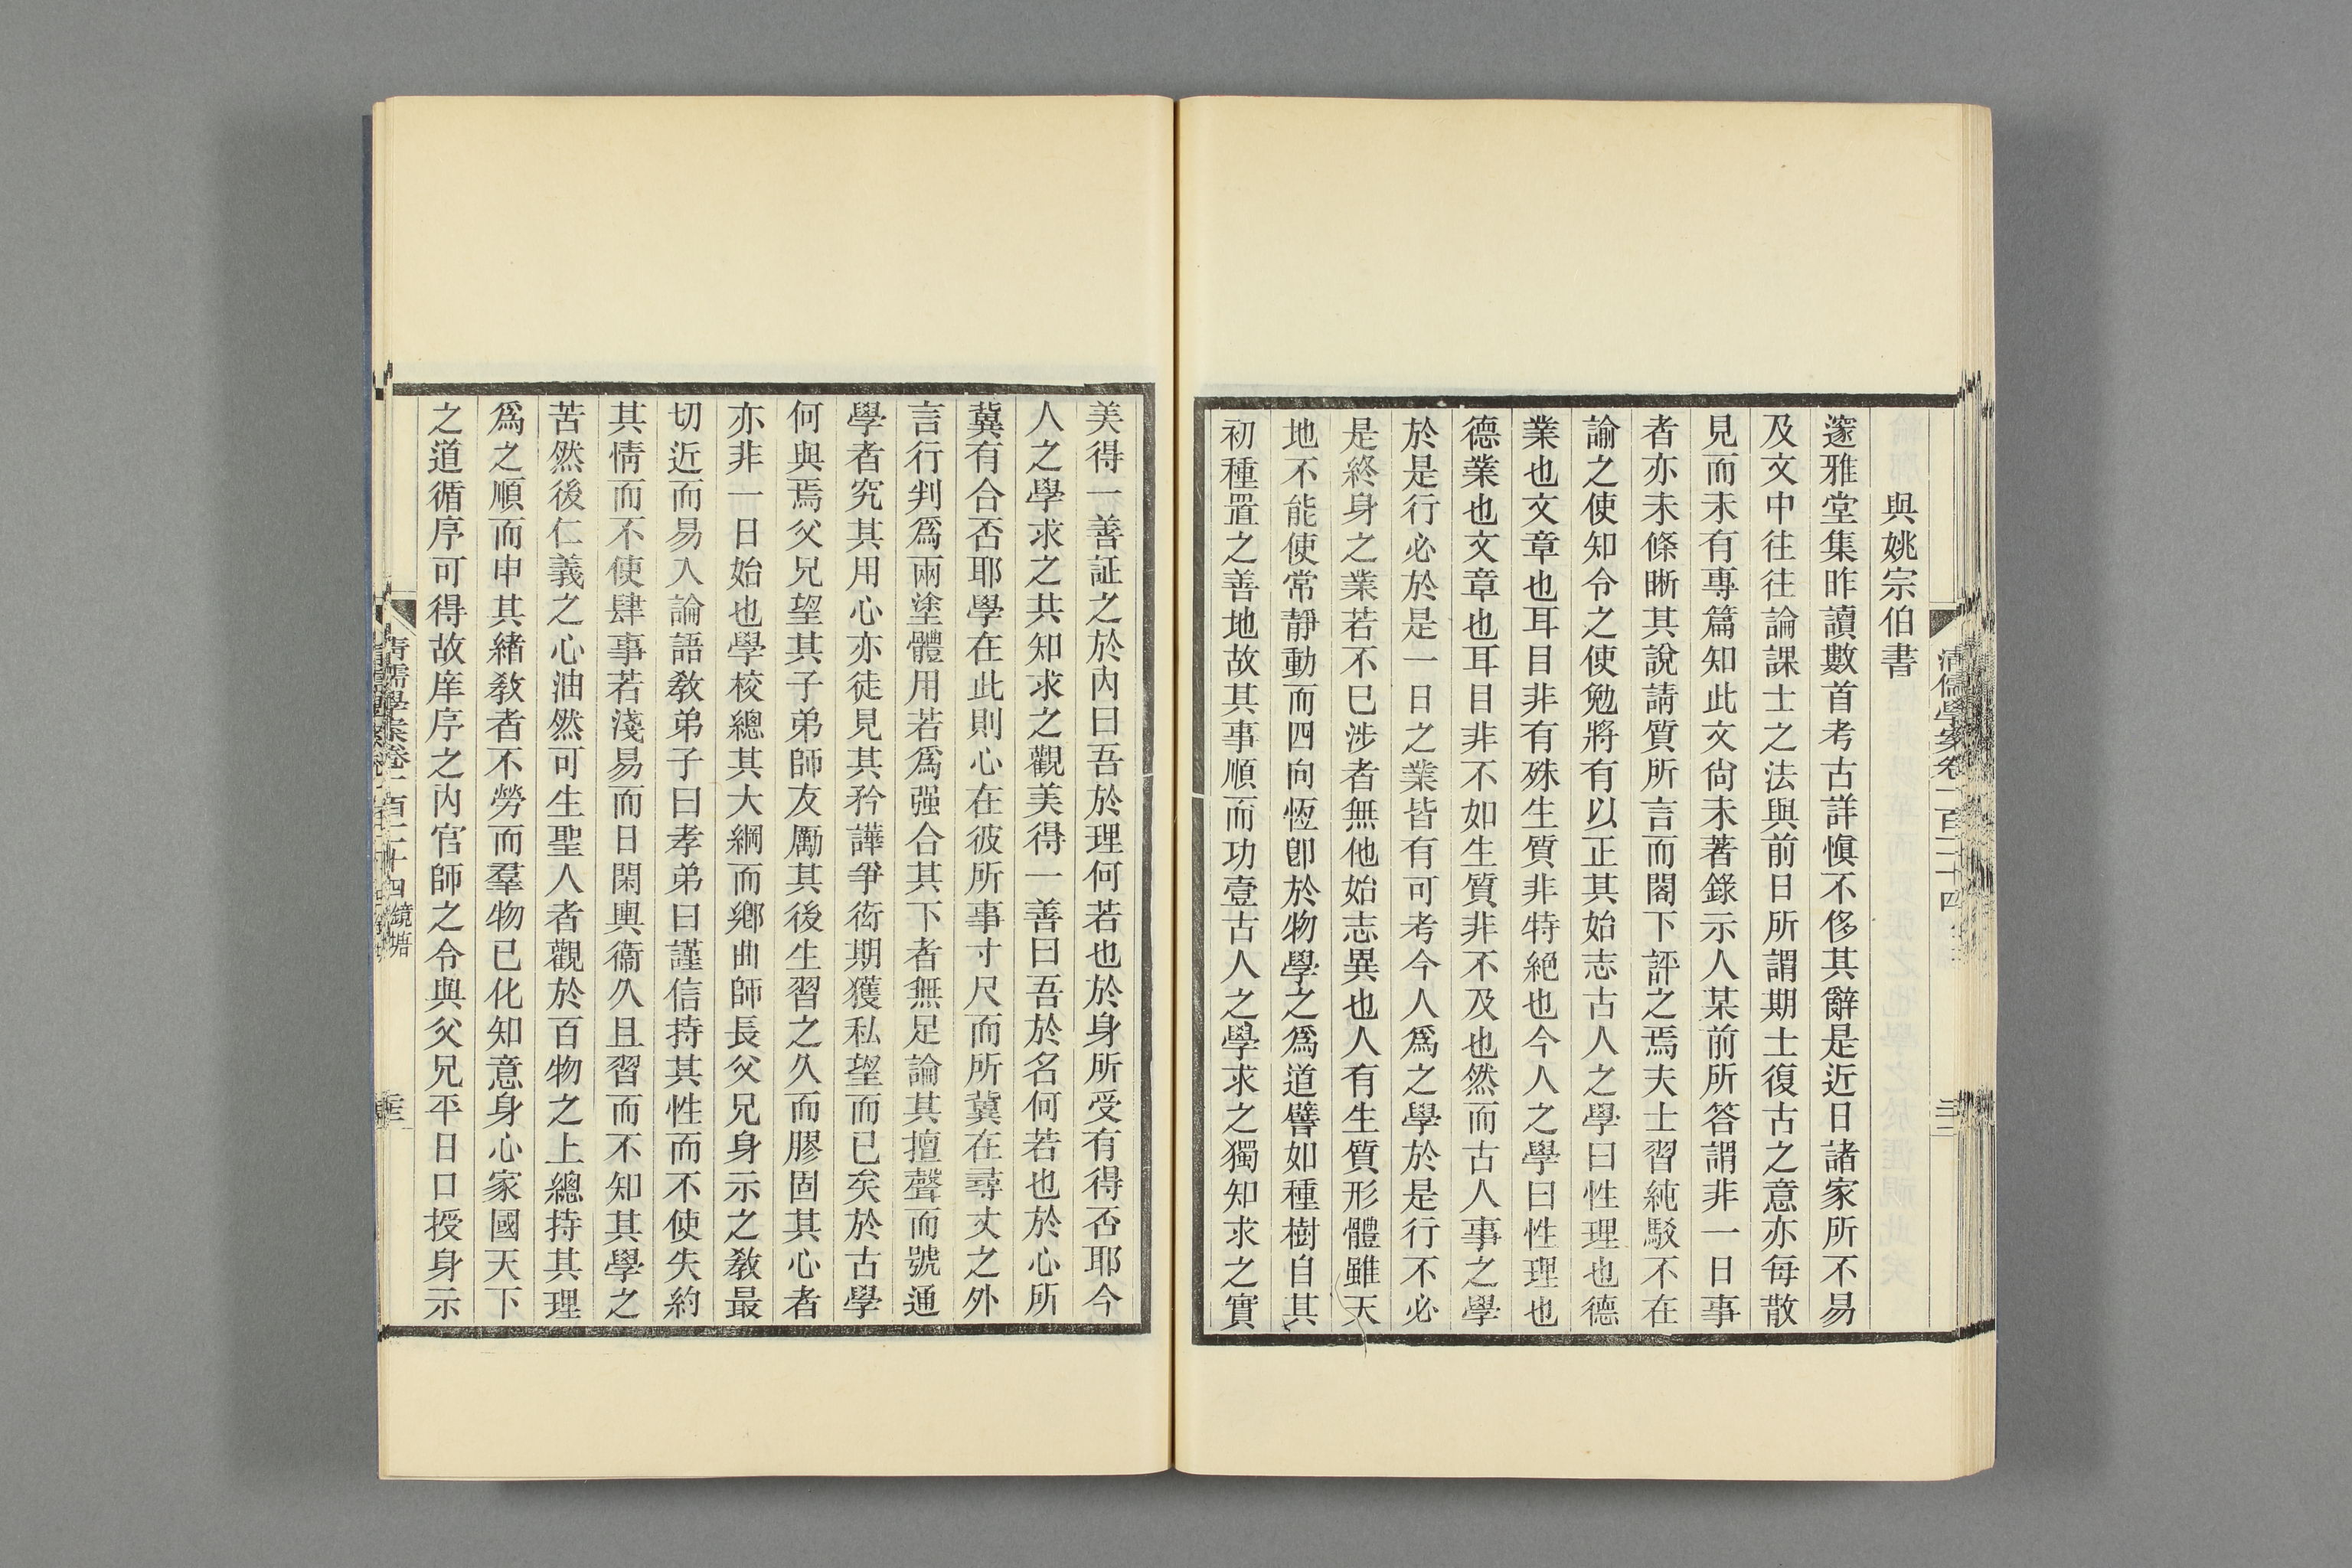 與姚宗伯書
邃雅堂集昨讀數首考古詳愼不侈其辭是近日諸家所不易
及文中往往論課士之法與前日所謂期士復古之意亦每散
見而未有專篇知此文尙未著錄示人某前所答謂非一日事
者亦未條晰其說請質所言而閣下評之焉夫士習純駁不在
諭之使知令之使勉將有以正其始志古人之學曰性理也德
業也文章也耳目非有殊生質非特絕也今人之學曰性理也
德業也文章也耳目非不如生質非不及也然而古人事之學
於是行必於是一日之業皆有可考今人爲之學於是行不必
是終身之業若不巳涉者無他始志異也人有生質形體雖天
地不能使常靜動而四向恆卽於物學之爲道譬如種樹自其
初種置之善地故其事順而功壹古人之學求之獨知求之實
清儒學案卷一百二十四
美得一善証之於內曰吾於理何若也於身所受有得否耶今
人之學求之共知求之觀美得一善曰吾於名何若也於心所
冀有合否耶學在此則心在彼所事寸尺而所冀在尋丈之外
言行判爲兩塗體用若爲强合其下者無足論其擅聲而號通
學者究其用心亦徒見其矜譁爭衒期獲私望而已矣於古學
何與焉父兄望其子弟師友勵其後生習之久而膠固其心者
亦非一日始也學校總其大綱而鄕曲師長父兄身示之敎最
切近而易入論語敎弟子曰孝弟曰謹信持其性而不使失約
其情而不使肆事若淺易而日閑輿衞久且習而不知其學之
苦然後仁義之心油然可生聖人者觀於百物之上總持其理
爲之順而申其緒敎者不勞而羣物已化知意身心家國天下
之道循序可得故庠序之內官師之令與父兄平日口授身示
清儒學案卷一百二十四 鏡塘